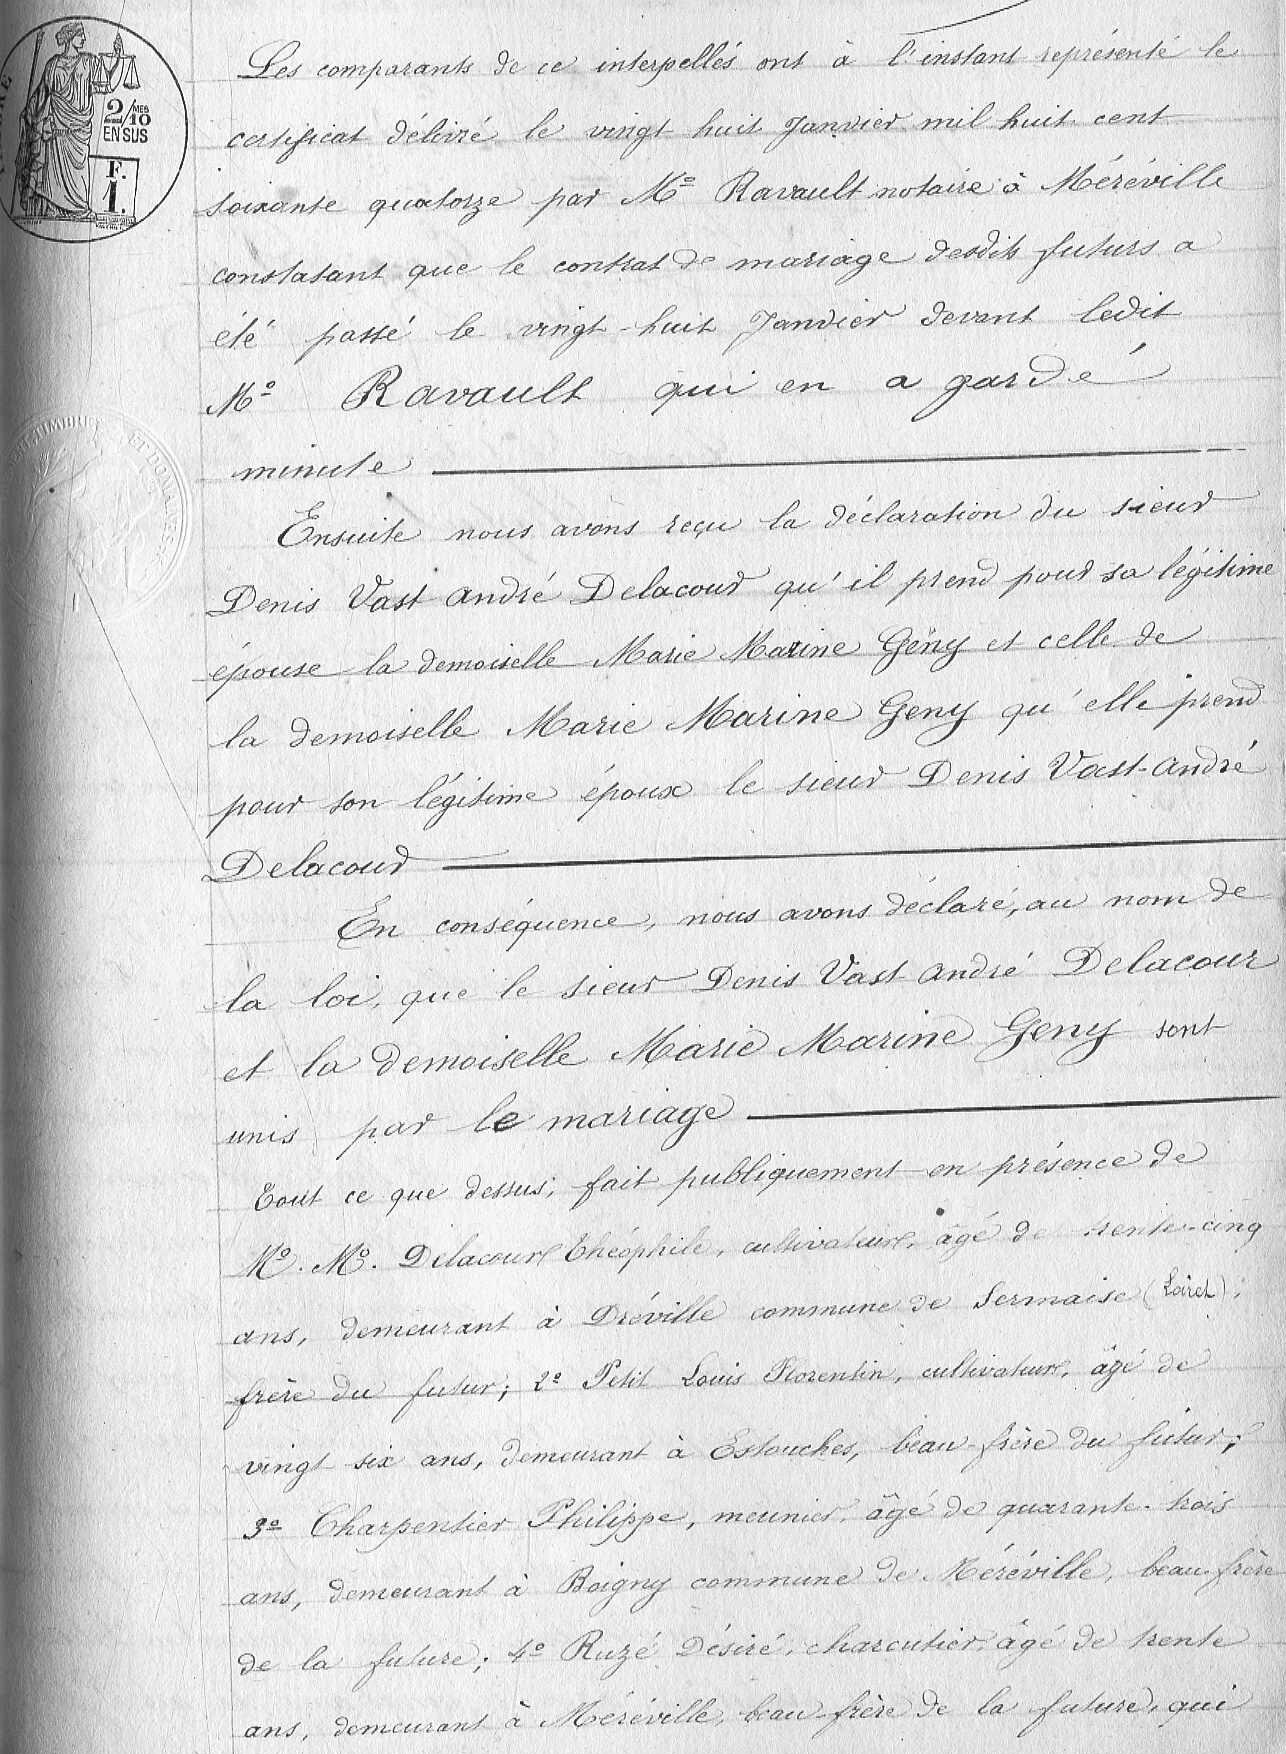 2/10 MES
EN SUS
F.
1.
Les comparants de ce interpellés ont à l'instant représenté le
certificat délivré le vingt huit Janvier mil huit cent
soixante quatorze par Me Ravault notaire à Méréville
constatant que le contrat de mariage desdits futurs a
été passé le vingt-huit Janvier devant ledit
Me Ravault qui en a gardé
minute
Ensuite nous avons reçu la déclaration du sieur
Denis Vast André Delacour qu'il prend pour sa légitime
épouse la demoiselle Marie Marine Gény et celle de
la demoiselle Marie Marine Geny qu'elle prend
pour son légitime époux le sieur Denis Vast-André
Delacour
En conséquence, nous avons déclaré, au nom de
la loi, que le sieur Denis Vast André Delacour
et la demoiselle Marie Marine Geny sont
unis par le mariage
Tout ce que dessus, fait publiquement en présence de
Mo. Mo. Delacour Théophile, cultivateur, âgé de trente-cinq
ans, demeurant à Dréville commune de Sermaise (Loiret);
frère du futur; 2º Petit Louis Florentin, cultivateur, âgé de
vingt six ans, demeurant à Estouches, beau-frère du futur;
3º Charpentier Philippe, meunier, âgé de quarante-trois
ans, demeurant à Boigny commune de Méréville, beau-frère
de la future; 4º Ruzé Désiré, charcutier, âgé de trente
ans, demeurant à Méréville, beau-frère de la future, qui